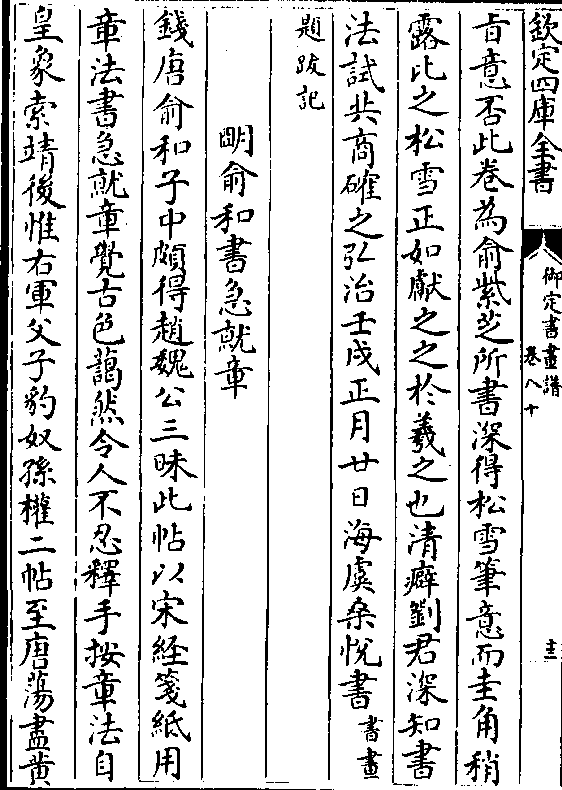 欽定四庫全書
御定書畫譜
卷八十
圭
旨意否此卷為俞紫芝所書深得松雪筆意而圭角稍
露比之松雪正如獻之之於羲之也清癖劉君深知書
法試共商確之弘治壬戌正月廿日海虞桑悅書書畫
題跋記
明俞和書急就章
錢唐俞和子中頗得趙魏公三昧此帖以宋經箋紙用
章法書急就章覺古色藹然令人不忍釋手按章法自
皇象索靖後惟右軍父子豹奴孫權二帖至唐蕩盡黄